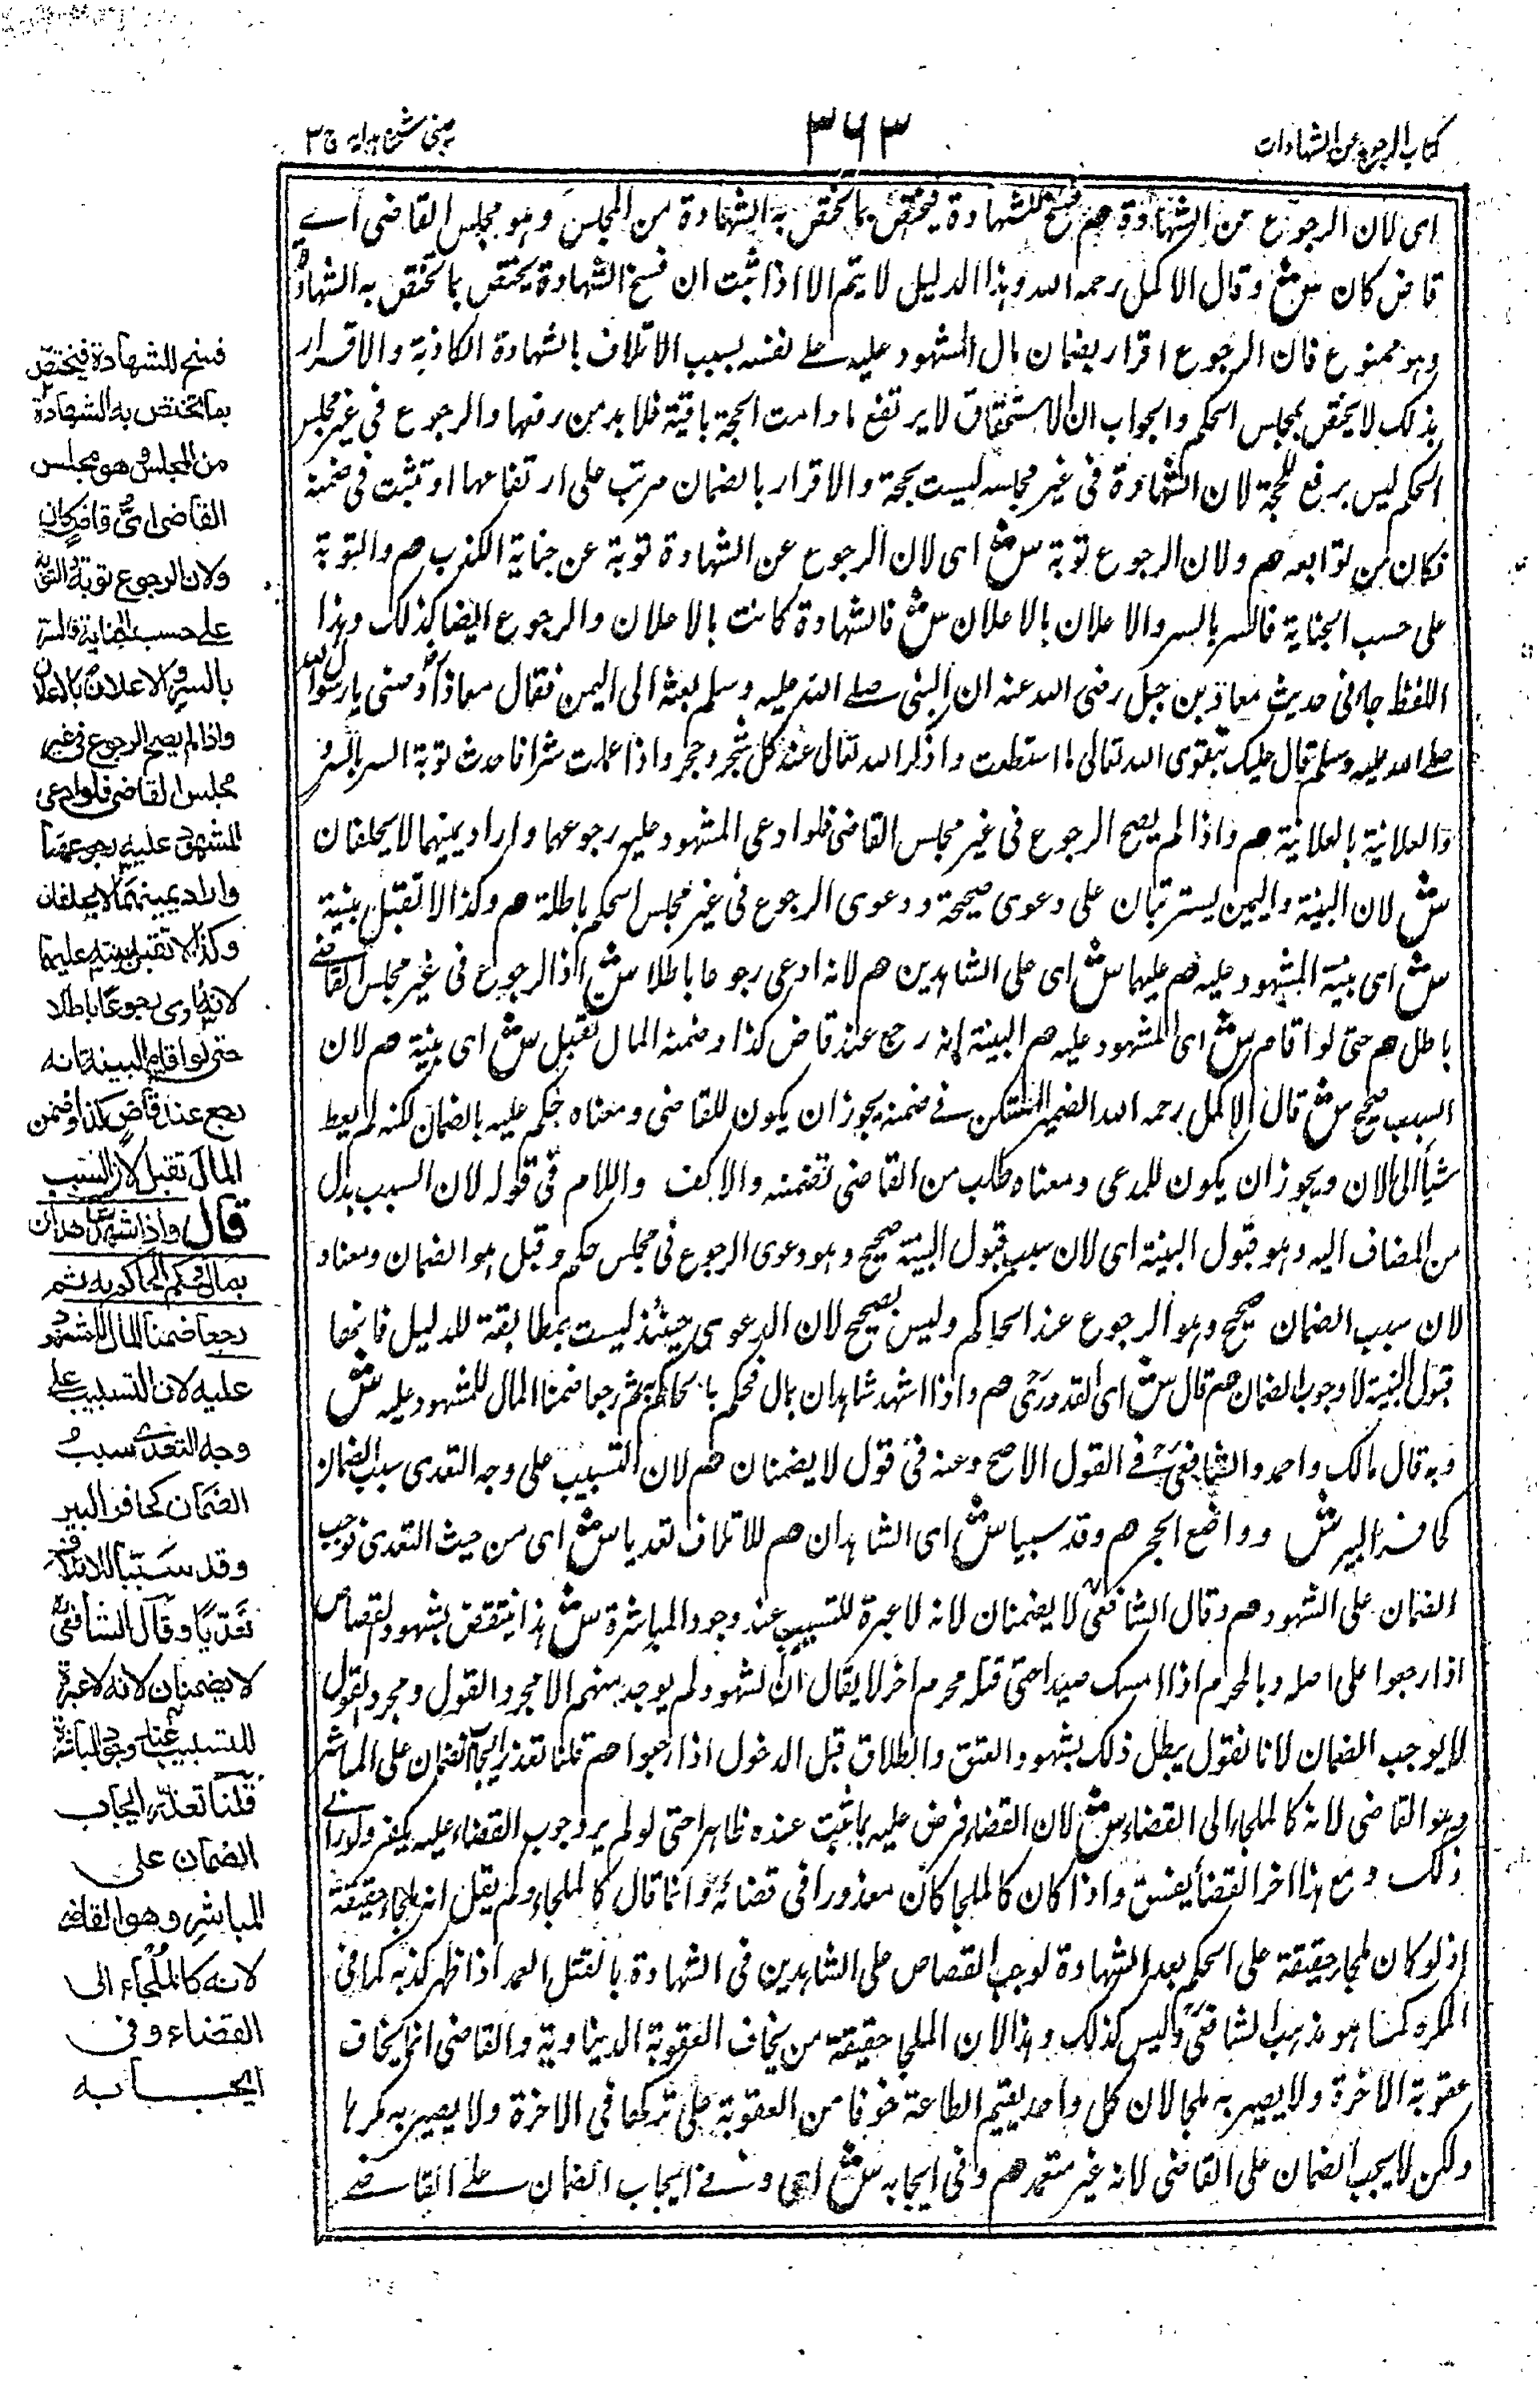 كتاب الرجوع عن الشهادات
٣٦٣
عينى شرح هدايه ج ٣
اى لان الرجوع عن الشهادة هم فسخ للشهادة فيختص بما تختص به الشهادة من المجلس وهو مجلس القاضى اے
قاض كان ش وقال الاكمل رحمه الله وهذا الدليل لا يتم الا اذا ثبت ان فسخ الشهادة يختص بما تختص به الشهادة
وهو ممنوع فان الرجوع اقرار بضمان مال المشهود عليه على نفسه بسبب الاتلاف بالشهادة الكاذبة والاقرار
بذلك لا يختص بمجلس الحكم والجواب ان الاستحقاق لا يرتفع ما دامت الحجة باقية فلا بد من رفعها والرجوع فى غير مجلس
الحكم ليس برفع للحجة لان الشهادة فى غير مجلسه ليست بحجة والاقرار بالضمان مرتب على ارتفاعها او تثبت فى ضمنه
فكان من توابعه هم ولان الرجوع توبة ش اى لان الرجوع عن الشهادة توبة عن جناية الكذب هم والتوبة
على حسب الجناية فالسر بالسر والاعلان بالاعلان ش فالشهادة كانت بالاعلان والرجوع ايضا كذلك وهذا
اللفظ جاء فى حديث معاذ بن جبل رضى الله عنه ان النبى صلى الله عليه وسلم بعثه الى اليمن فقال معاذ اوصنى يا رسول الله
صلى الله عليه وسلم قال عليك بتقوى الله تعالى ما استطعت واذكر الله تعالى عند كل شجر وحجر واذا عملت شرا فاحدث توبة السر بالسر
والعلانية بالعلانية هم واذا لم يصح الرجوع فى غير مجلس القاضى فلو ادعى المشهود عليه رجوعهما واراد يمينهما لا يحلفان
ش لان البينة واليمين يترتبان على دعوى صحيحة ودعوى الرجوع فى غير مجلس الحكم باطلة هم وكذا لا تقبل بينة
ش اى بينة المشهود عليه هم عليهما ش اى على الشاهدين هم لانه ادعى رجوعا باطلا ش اذ الرجوع فى غير مجلس القاضے
باطل هم حتى لو اقام ش اى المشهود عليه هم البينة انه رجع عند قاض كذا وضمنه المال تقبل ش اى بينة هم لان
السبب صحيح ش قال الاكمل رحمه الله الضمير المستكن فے ضمنه يجوز ان يكون للقاضى ومعناه حكم عليه بالضمان لكنه لم يعط
شيأ الى الان ويجوز ان يكون للمدعى ومعناه طلب من القاضى تضمينه والالف واللام فى قوله لان السبب بدل
من المضاف اليه وهو قبول البينة اى لان سبب قبول البينة صحيح وهو دعوى الرجوع فى مجلس حكم وقيل هو الضمان ومعناه
لان سبب الضمان صحيح وهو الرجوع عند الحاكم وليس بصحيح لان الدعوى حينئذ ليست بمطابقة للدليل فانها
قبول البينة لا وجوب الضمان هم قال ش اى القدورى هم واذا شهد شاهدان بمال فحكم الحاكم به ثم رجعا ضمنا المال للمشهود عليه ش
وبه قال مالك واحمد والشافعى فے القول الاصح وعنه فى قول لا يضمنان هم لان التسبيب على وجه التعدى سبب الضمان
كحافر البير ش وواضع الحجر هم وقد سببا ش اى الشاهدان هم للاتلاف تعديا ش اى من حيث التعدى فوجب
الضمان على الشهود هم وقال الشافعى لا يضمنان لانه لا عبرة للتسبيب عند وجود المباشرة ش هذا ينتقض بشهود القصاص
اذا رجعوا على اصله وبالمحرم اذا امسك صيدا حتى قتله محرم اخر لا يقال ان الشهود لم يوجد منهم الا مجرد القول ومجرد القول
لا يوجب الضمان لانا نقول يبطل ذلك بشهود العتق والطلاق قبل الدخول اذا رجعوا هم قلنا تعذر ايجاب الضمان على المباشر
وهو القاضى لانه كالملجاء الى القضاء ش لان القضاء فرض عليه بما ثبت عنده ظاهرا حتى لو لم ير وجوب القضاء عليه يكفر ولو راے
ذلك ومع هذا اخر القضاء يفسق واذا كان كالملجا كان معذورا فى قضائه وانما قال كالملجاء ولم يقل انه ملجاء حقيقة
اذ لو كان ملجاء حقيقة على الحكم بعد الشهادة لوجب القصاص على الشاهدين فى الشهادة بالقتل العمد اذا ظهر كذبه كما فى
المكره كما هو مذهب الشافعى وليس كذلك وهذا لان الملجا حقيقة من يخاف العقوبة الدنياوية والقاضى انما يخاف
عقوبة الاخرة ولا يصير به ملجا لان كل واحد يقيم الطاعة خوفا من العقوبة على تركها فى الاخرة ولا يصير به مكرها
ولكن لا يجب الضمان على القاضى لانه غير متعد هم وفى ايجابه ش اى وفے ايجاب الضمان علے القاضے
فسخ للشهادة فيختص
بما تختص به الشهادة
من المجلس وهو مجلس
القاضى اىّ قاضٍ كان
ولان الرجوع توبة والتوبة
على حسب الجناية فالسر
بالسر والاعلان بالاعلان
واذا لم يصح الرجوع فى غير
مجلس القاضى فلو ادعى
المشهود عليه رجوعهما
واراد يمينهما لا يحلفان
وكذا لا تقبل بينته عليهما
لانه ادعى رجوعًا باطلا
حتى لو اقام البينة انه
رجع عند قاضٍ كذا وضمن
المال تقبل لان السبب
صحيح قال واذا شهد شاهدان
بمال فحكم الحاكم به ثم
رجعا ضمنا المال للمشهود
عليه لان التسبيب على
وجه التعدى سبب
الضمان كحافر البير
وقد سبّبا للاتلاف
تعدّيًا وقال الشافعىؒ
لا يضمنان لانه لا عبرة
للتسبيب عند وجود المباشرة
قلنا تعذّر ايجاب
الضمان على
المباشر وهو القاضے
لانه كالملجاء الى
القضاء وفى
ايجــابه